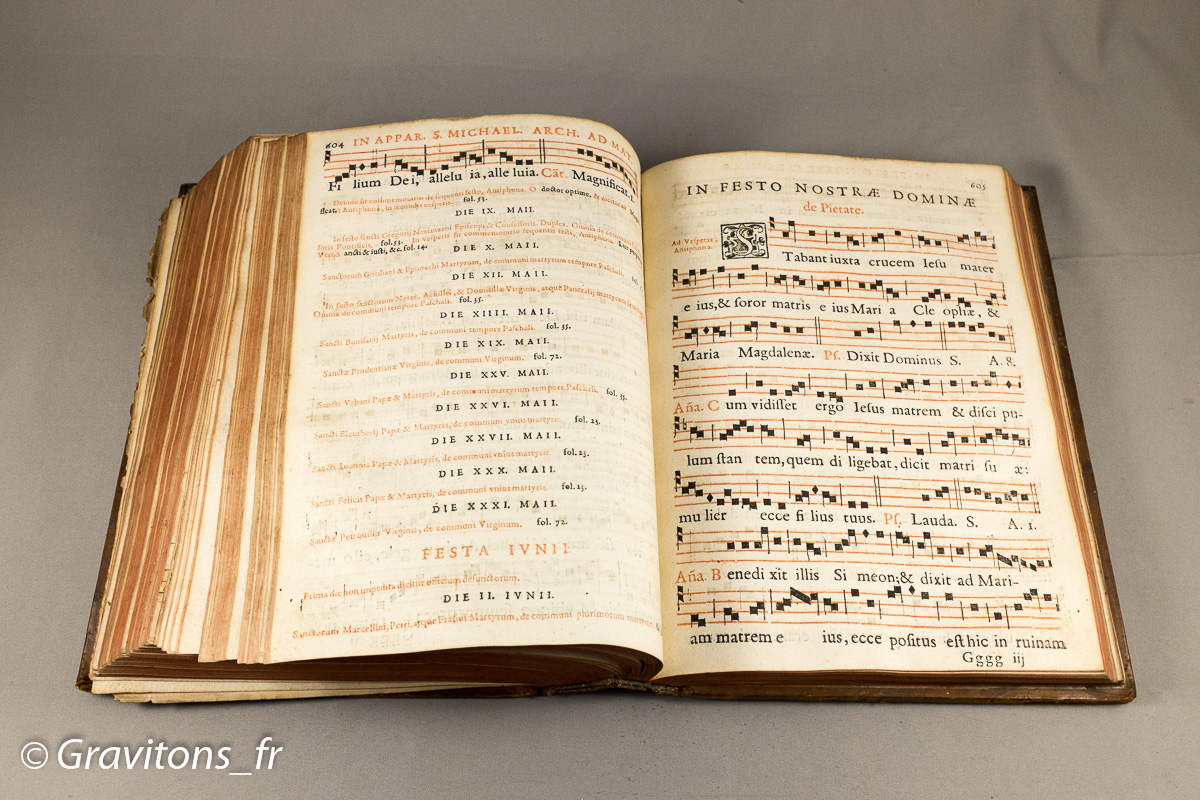 604 IN APPAR. S. MICHAEL. ARCH. AD MAT.
Fi lium De i, allelu ia, alle luia. Cãt. Magnificat. I.
Deinde fit commemoratio de sequenti festo, Antiphona. O doctor optime. &
ficat. Antiphona, in secundis vesperis. fol. 53.
DIE IX. MAII.
In festo sancti Gregorij Nazianzeni Episcopi, & Confessoris. Duplex. Omnia de
fessoris Pontificis. fol. 53. In vesperis fit commemoratio sequentis festi, Antiphona. Lux
Vers. Sancti & iusti, &c. fol. 14.
DIE X. MAII.
Sanctorum Gordiani & Epimachi Martyrum, de communi martyrum tempore Paschali. fol.
DIE XII. MAII.
In festo sanctorum Nerei, Achillei, & Domitillæ Virginis, atque Pancratij martyrum
Omnia de communi tempore Paschali. fol. 35.
DIE XIIII. MAII.
Sancti Bonifacij Martyris, de communi tempore Paschali. fol. 35.
DIE XIX. MAII.
Sanctæ Prudentianæ Virginis, de communi Virginum. fol. 72.
DIE XXV. MAII.
Sancti Vrbani Papæ & Martyris, de communi martyrum tempore Paschali. fol. 35.
DIE XXVI. MAII.
Sancti Eleutherij Papæ & Martyris, de communi vnius martyris. fol. 23.
DIE XXVII. MAII.
Sancti Ioannis Papæ & Martyris, de communi vnius martyris. fol. 23.
DIE XXX. MAII.
Sancti Felicis Papæ & Martyris, de communi vnius martyris. fol. 23.
DIE XXXI. MAII.
Sanctæ Petronillæ Virginis, de communi Virginum. fol. 72.
FESTA IVNII.
Prima die non impedita dicitur officium defunctorum.
DIE II. IVNII.
Sanctorum Marcellini, Petri, atque Erasmi Martyrum, de communi plurimorum martyrum
605
IN FESTO NOSTRÆ DOMINÆ
de Pietate.
Ad Vesperas,
Antiphona.
STabant iuxta crucem Iesu mater
e ius, & soror matris e ius Mari a Cle ophæ, &
Maria Magdalenæ. Ps. Dixit Dominus S. A. 8.
Aña. C um vidisset ergo Iesus matrem & disci pu-
lum stan tem, quem di ligebat, dicit matri su æ:
mu lier ecce fi lius tuus. Ps. Lauda. S. A. 1.
Aña. B enedi xit illis Si meon; & dixit ad Mari-
am matrem e ius, ecce positus est hic in ruinam
Gggg iij
© Gravitons_fr